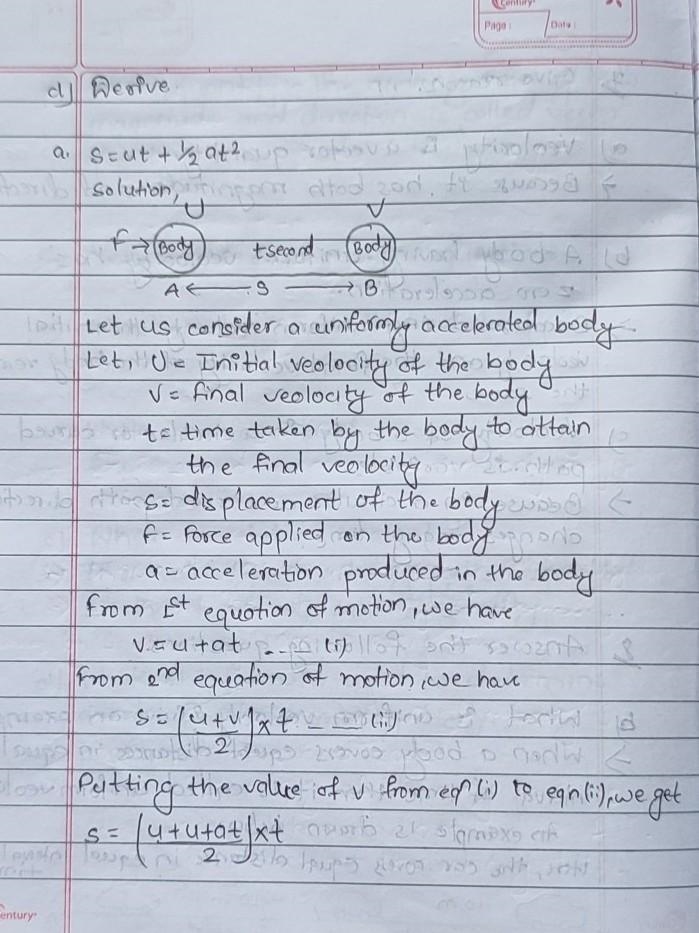 Century
Page :
Date :
d) Derive
a. s = ut + 1/2 at²
solution,
U V
F → Body t second Body
A ← S → B
Let us consider a uniformly accelerated body
Let, U = Initial veolocity of the body
V = final veolocity of the body
t = time taken by the body to attain
the final veolocity
s = displacement of the body
F = Force applied on the body
a = acceleration produced in the body
From 1st equation of motion, we have
v = u + at ---- (i)
From 2nd equation of motion, we have
s = (u+v/2) x t --- (ii)
Putting the value of v from eqn (i) to eqn (ii), we get
s = (u+u+at/2) x t
entury